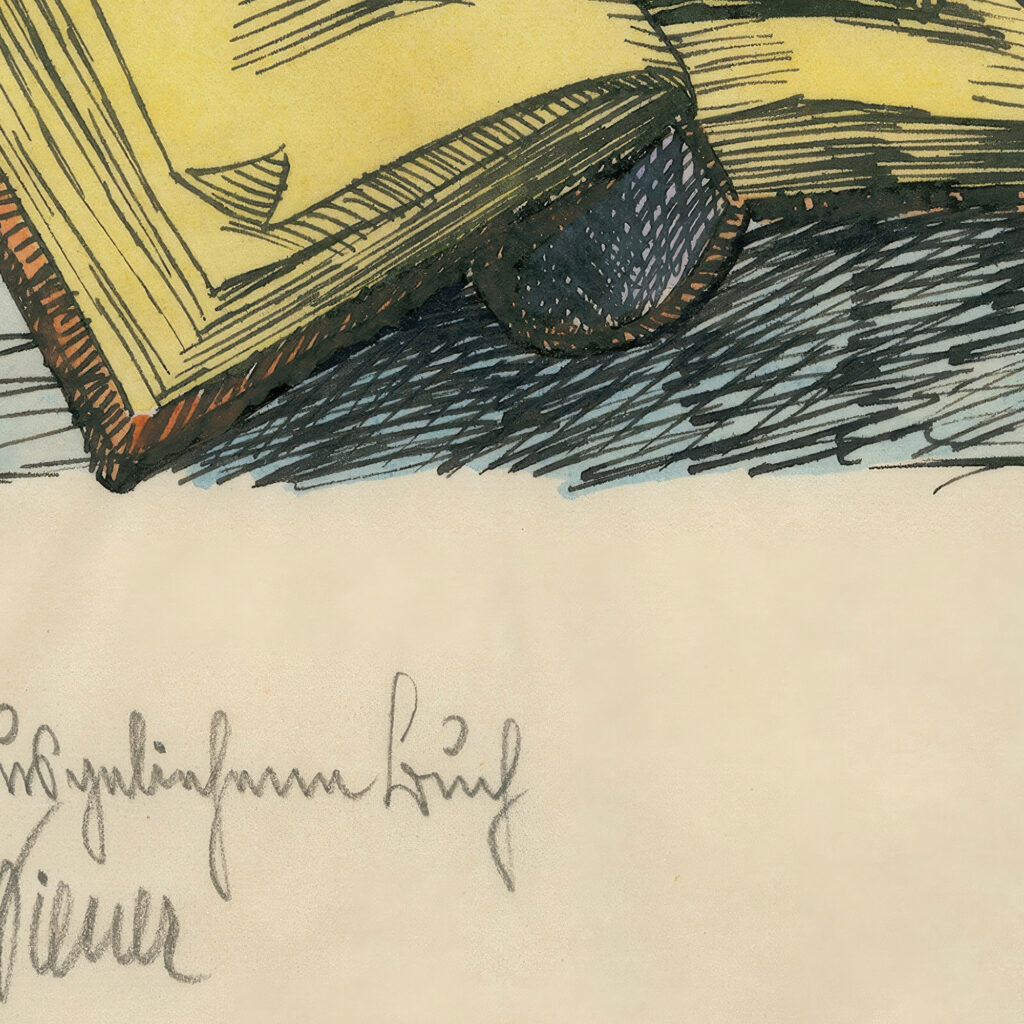 usgeliehene Buch
Wiener